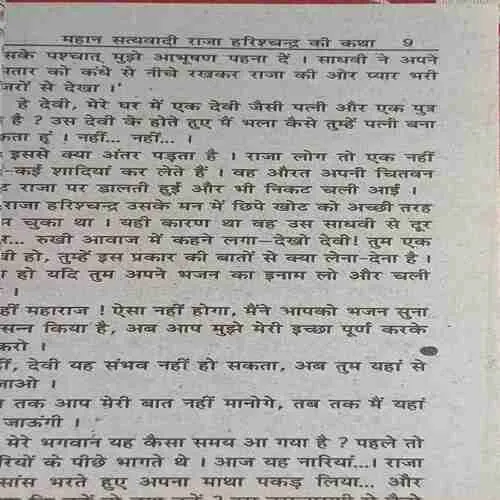 महान सत्यवादी राजा हरिश्चन्द्र की कथा 9
सके पश्चात् मुझे आभूषण पहना दें । साधवी ने अपने
सतार को कंधे से नीचे रखकर राजा की ओर प्यार भरी
जरों से देखा ।'
हे देवी, मेरे घर में एक देवी जैसी पत्नी और एक पुत्र
है ? उस देवी के होते हुए मैं भला कैसे तुम्हें पत्नी बना
कता हूं । नहीं... नहीं... ।
इससे क्या अंतर पड़ता है । राजा लोग तो एक नहीं
-कई शादियां कर लेते हैं । वह औरत अपनी चितवन
राजा पर डालती हुई और भी निकट चली आई ।
राजा हरिश्चन्द्र उसके मन में छिपे खोट को अच्छी तरह
न चुका था । यही कारण था वह उस साधवी से दूर
र... रुखी आवाज में कहने लगा—देखो देवी! तुम एक
वी हो, तुम्हें इस प्रकार की बातों से क्या लेना-देना है ।
हो यदि तुम अपने भजन का इनाम लो और चली
।
हीं महाराज ! ऐसा नहीं होगा, मैंने आपको भजन सुना
सन्न किया है, अब आप मुझे मेरी इच्छा पूर्ण करके
करो ।
हीं, देवी यह संभव नहीं हो सकता, अब तुम यहां से
जाओ ।
तक आप मेरी बात नहीं मानोगे, तब तक मैं यहां
जाऊंगी ।
मेरे भगवान यह कैसा समय आ गया है ? पहले तो
रियों के पीछे भागते थे । आज यह नारियां...। राजा
सांस भरते हुए अपना माथा पकड़ लिया... और